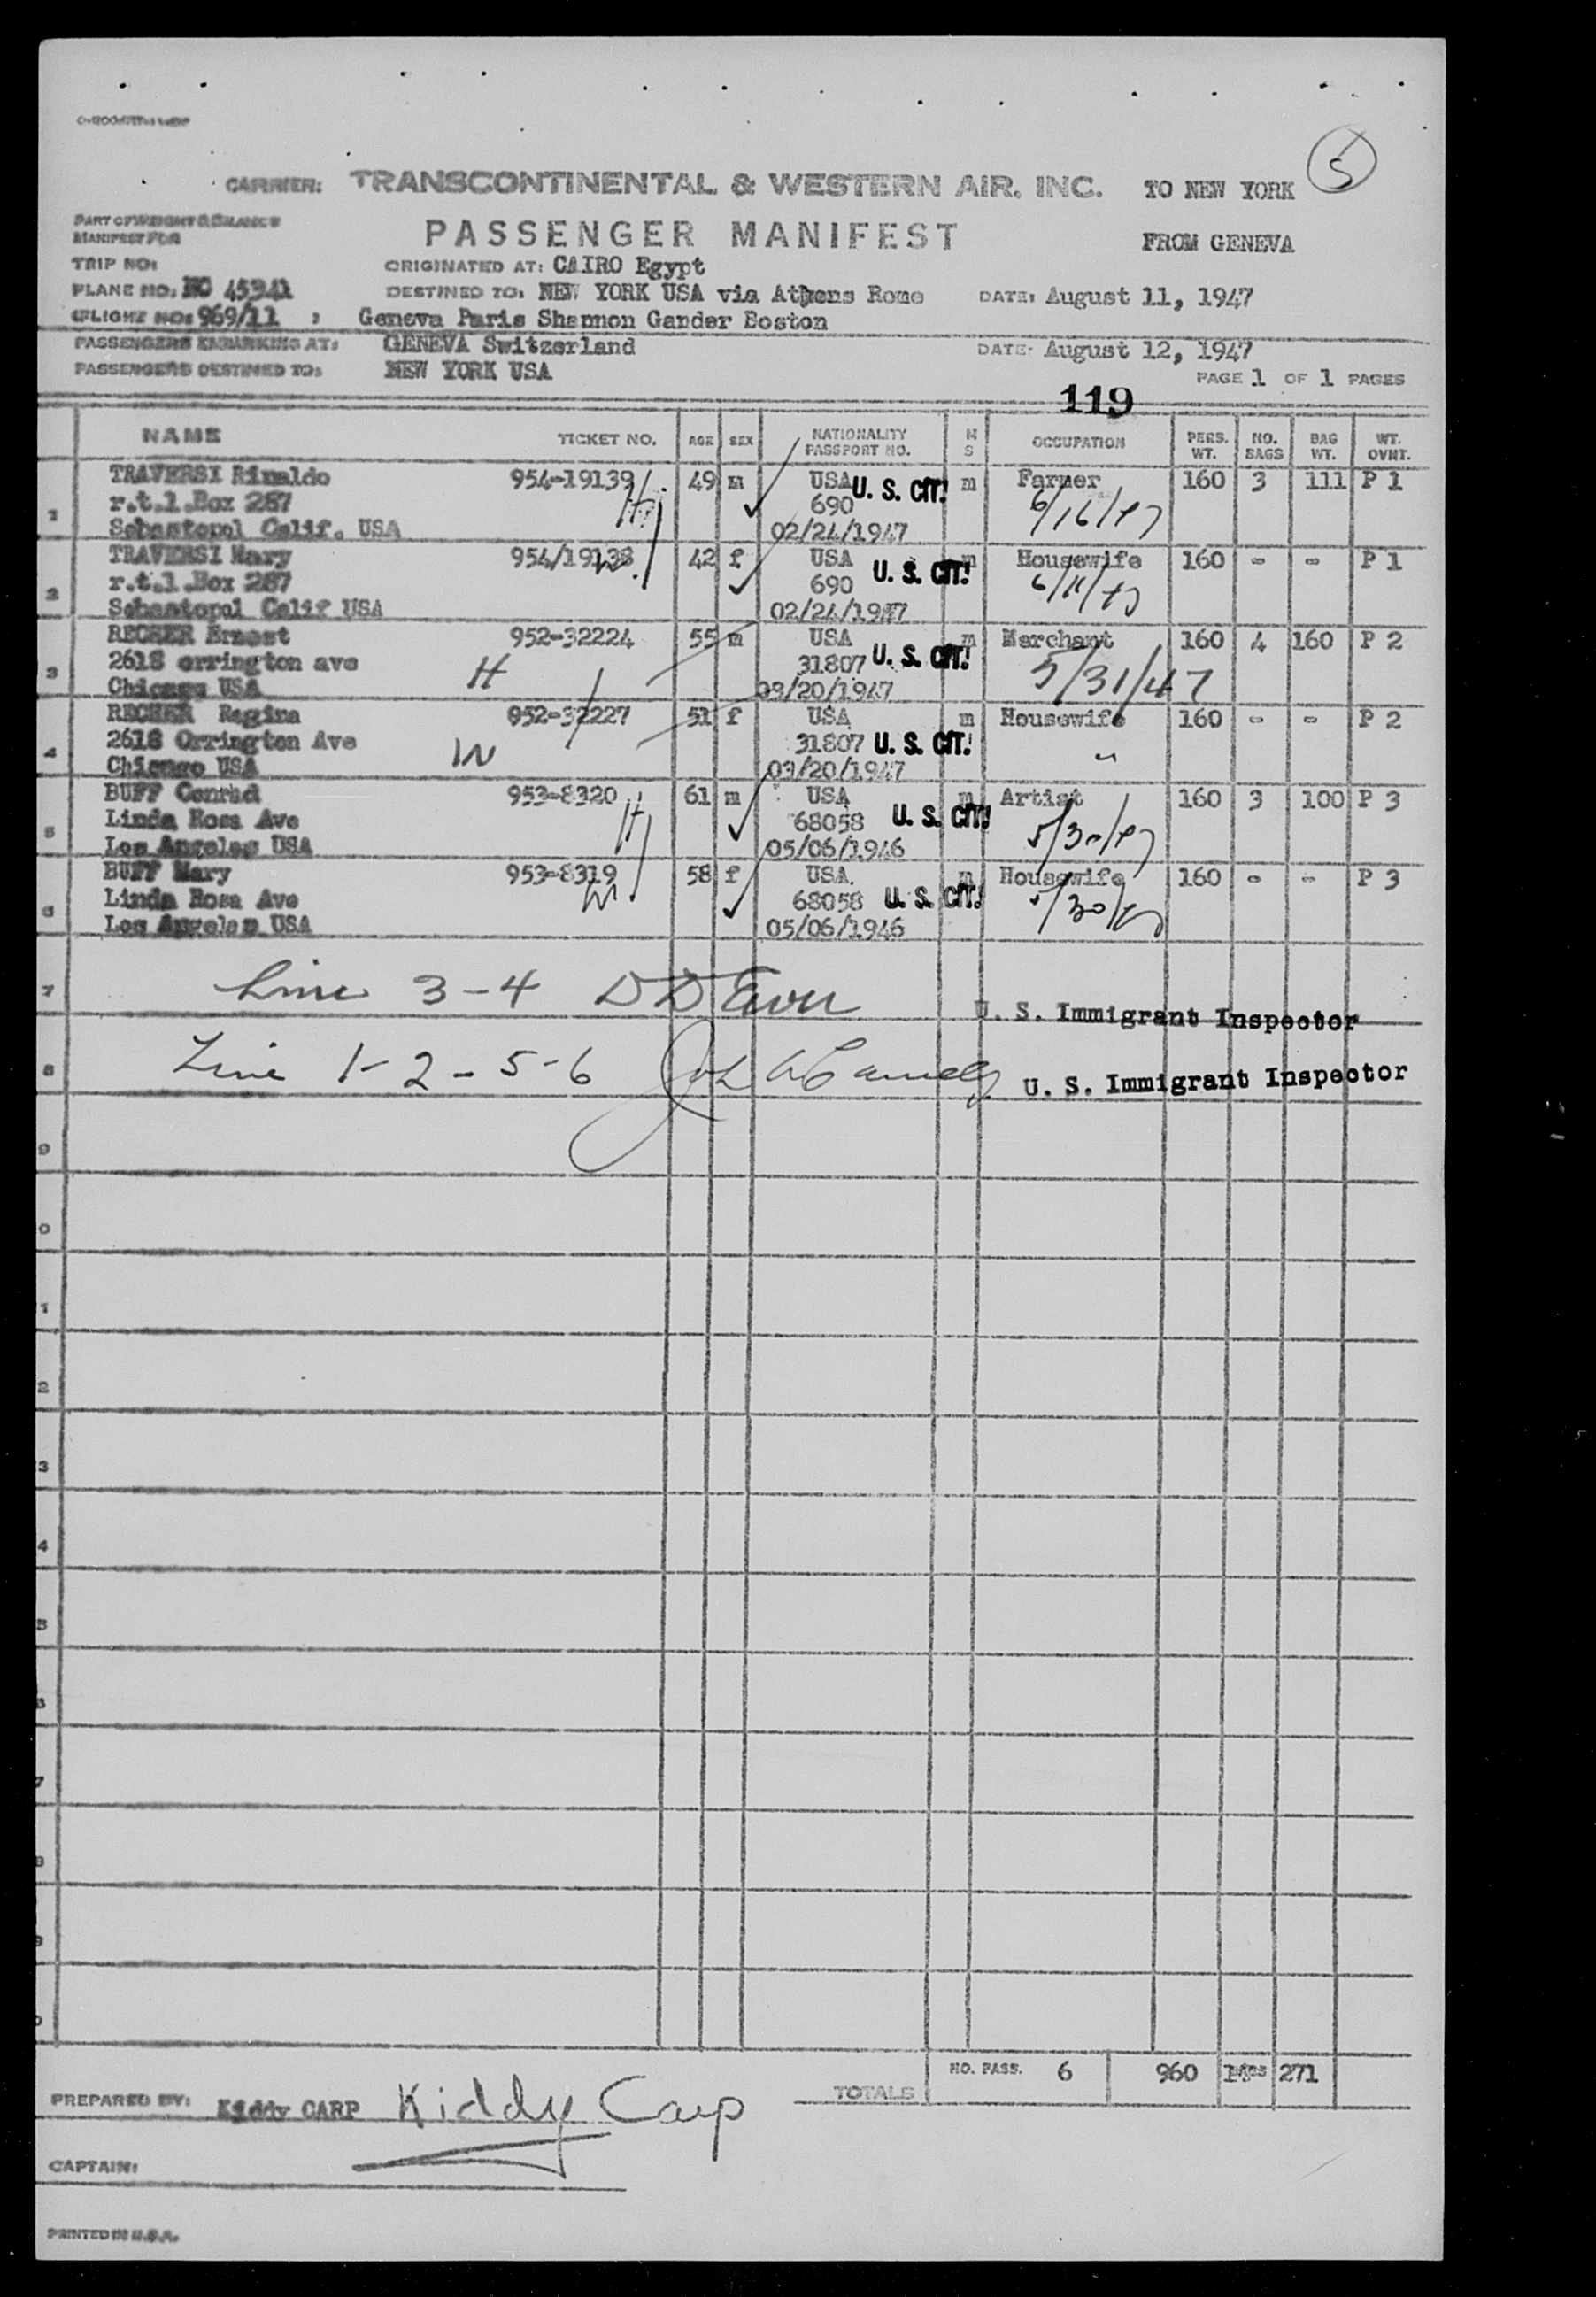 5
CARRIER: TRANSCONTINENTAL & WESTERN AIR, INC. TO NEW YORK
PART OF WEIGHT & BALANCE
MANIFEST FOR
PASSENGER MANIFEST FROM GENEVA
TRIP NO: ORIGINATED AT: CAIRO Egypt
PLANE NO: NC 45341 DESTINED TO: NEW YORK USA via Athens Rome DATE: August 11, 1947
FLIGHT NO: 969/11 Geneva Paris Shannon Gander Boston
PASSENGERS EMBARKING AT: GENEVA Switzerland DATE: August 12, 1947
PASSENGERS DESTINED TO: NEW YORK USA
PAGE 1 OF 1 PAGES
119
NAME TICKET NO. AGE SEX NATIONALITY PASSPORT NO. M S OCCUPATION PERS. WT. NO. BAGS BAG WT. WT. OVHT.
TRAVERSI Rinaldo 954-19139 49 m USA U. S. CIT. m Farmer 160 3 111 P 1
1 r.t.1.Box 287 H 690 6/16/47
Sebastopol Calif. USA 02/24/1947
TRAVERSI Mary 954/19138 42 f USA U. S. CIT. m Housewife 160 - - P 1
2 r.t.1.Box 287 W 690 6/11/47
Sebastopol Calif USA 02/24/1947
RECHER Ernest 952-32224 55 m USA m Merchant 160 4 160 P 2
3 2618 orrington ave H 31807 U. S. CIT. 5/31/47
Chicago USA 03/20/1947
RECHER Regina 952-32227 51 f USA m Housewife 160 - - P 2
4 2618 Orrington Ave W 31807 U. S. CIT. "
Chicago USA 03/20/1947
BUFF Conrad 953-8320 61 m USA m Artist 160 3 100 P 3
5 Linda Rosa Ave H 68058 U. S. CIT. 5/30/47
Los Angeles USA 05/06/1946
BUFF Mary 953-8319 58 f USA. m Housewife 160 - - P 3
6 Linda Rosa Ave W 68058 U. S. CIT. 5/30/47
Los Angeles USA 05/06/1946
7 Line 3-4 U. S. Immigrant Inspector
8 Line 1-2-5-6 U. S. Immigrant Inspector
9
0
1
2
3
4
5
7
TOTALS NO. PASS. 6 960 271
PREPARED BY: Kiddy CARP Kiddy Carp
CAPTAIN:
PRINTED IN U.S.A.